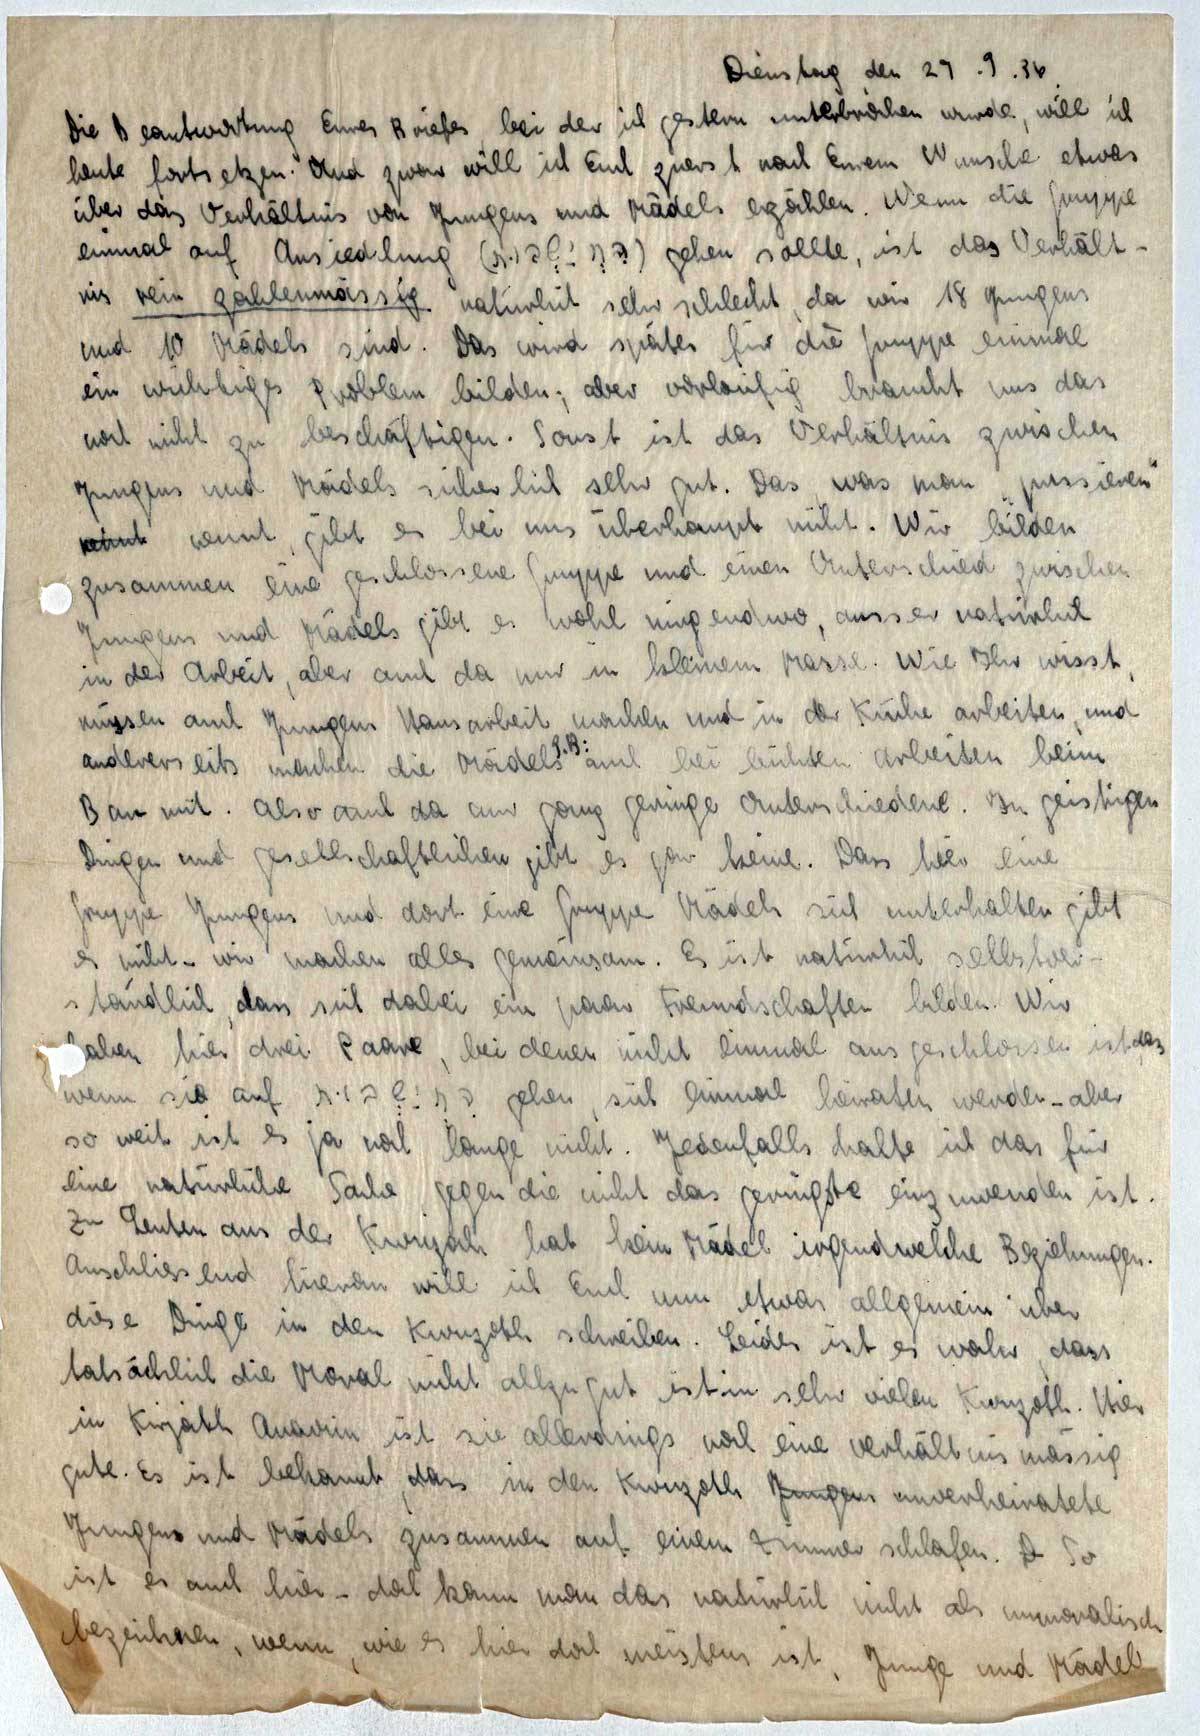 Dienstag den 29.9.36.
Die Beantwortung Eures Briefes bei der ich gestern unterbrochen wurde, will ich
heute fortsetzen. Und zwar will ich Euch zuerst nach Eurem Wunsche etwas
über das Verhältnis von Jungens und Mädels erzählen. Wenn die Gruppe
einmal auf Ansiedlung () gehen sollte, ist das Verhält-
nis rein zahlenmässig natürlich sehr schlecht, da wir 18 Jungens
und 10 Mädels sind. Das wird später für die Gruppe einmal
ein wichtiges Problem bilden; aber vorläufig braucht uns das
noch nicht zu beschäftigen. Sonst ist das Verhältnis zwischen
Jungens und Mädels sicherlich sehr gut. Das, was man „pussieren"
nennt, gibt es bei uns überhaupt nicht. Wir bilden
zusammen eine geschlossene Gruppe und einen Unterschied zwischen
Jungens und Mädels gibt es wohl nirgendwo, ausser natürlich
in der Arbeit, aber auch da nur in kleinem Masse. Wie Ihr wisst,
müssen auch Jungens Hausarbeit machen und in der Küche arbeiten, und
andererseits machen die Mädels z.B: auch bei leichten Arbeiten beim
Bau mit. Also auch da nur ganz geringe Unterschiedene. In geistigen
Dingen und gesellschaftlichen gibt es gar keine. Dass hier eine
Gruppe Jungens und dort eine Gruppe Mädels sich unterhalten gibt
es nicht – wir machen alles gemeinsam. Es ist natürlich selbstver-
ständlich, dass sich dabei ein paar Freundschaften bilden. Wir
haben hier drei Paare, bei denen nicht einmal ausgeschlossen ist, dass
wenn sie auf gehen, sich einmal heiraten werden – aber
so weit ist es ja noch lange nicht. Jedenfalls halte ich das für
eine natürliche Sache gegen die nicht das geringste einzuwenden ist.
Zu Leuten aus der Kwuzah hat kein Mädel irgendwelche Beziehungen.
Anschliessend hieran will ich Euch nun etwas allgemein über
diese Dinge in den Kwuzoth schreiben. Leider ist es wahr, dass
tatsächlich die Moral nicht allzu gut ist in sehr vielen Kwuzoth. Hier
in Kirjath Anavim ist sie allerdings noch eine verhältnismässig
gute. Es ist bekannt, dass in den Kwuzoth Jungens unverheiratete
Jungens und Mädels zusammen auf einem Zimmer schlafen. So
ist es auch hier – doch kann man das natürlich nicht als unmoralisch
bezeichnen, wenn, wie es hier doch meistens ist, Junge und Mädel